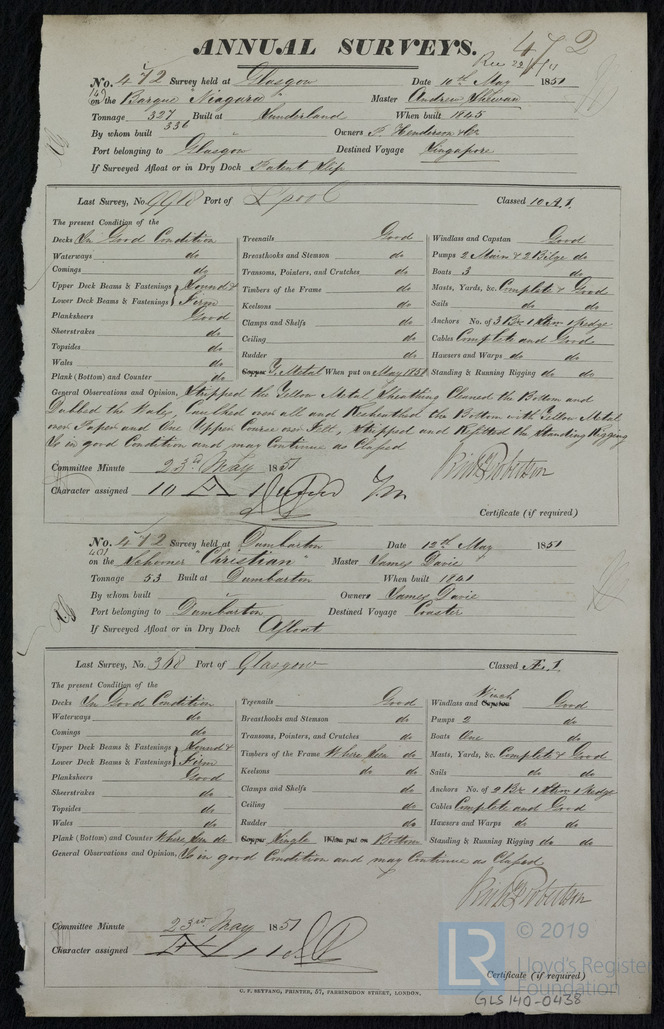 ANNUAL SURVEYS.
472
Rec 22/5/51
No. 472 Survey held at Glasgow Date 10th May 1851
on the Barque "Niagara" Master Andrew Shewan
Tonnage 327 Built at Sunderland When built 1845
336
By whom built " Owners P. Henderson & Co
Port belonging to Glasgow Destined Voyage Singapore
If Surveyed Afloat or in Dry Dock Patent Slip
Last Survey, No. 9918 Port of Lpool Classed 10 A.1.
The present Condition of the
Decks In Good Condition
Waterways do
Comings do
Upper Deck Beams & Fastenings } Sound &
Lower Deck Beams & Fastenings } Firm
Planksheers Good
Sheerstrakes do
Topsides do
Wales do
Plank (Bottom) and Counter do
Treenails Good
Breasthooks and Stemson do
Transoms, Pointers, and Crutches do
Timbers of the Frame do
Keelsons do
Clamps and Shelfs do
Ceiling do
Rudder do
Copper Y. Metal When put on May 1851
Windlass and Capstan Good
Pumps 2 Main & 2 Bilge do
Boats 3 do
Masts, Yards, &c. Complete & Good
Sails do do
Anchors No. of 3 Br 1 Strm 1 Kedge
Cables Complete and Good
Hawsers and Warps do do
Standing & Running Rigging do do
General Observations and Opinion, Stripped the Yellow Metal Sheathing Cleaned the Bottom and
Dubbed the Wales, Caulked over all and Resheathed the Bottom with Yellow Metal
over Paper and One Upper Course over Felt, Stripped and Refitted the Standing Rigging
Is in good Condition and may Continue as Classed
Committee Minute 23rd May 1851
Character assigned 10 A 1
Robertson
Certificate (if required)
No. 472 Survey held at Dumbarton Date 12th May 1851
on the Schooner "Christian" Master James Davie
Tonnage 53 Built at Dumbarton When built 1841
By whom built " Owners James Davie
Port belonging to Dumbarton Destined Voyage Coaster
If Surveyed Afloat or in Dry Dock Afloat
Last Survey, No. 368 Port of Glasgow Classed Æ.1.
The present Condition of the
Decks In Good Condition
Waterways do
Comings do
Upper Deck Beams & Fastenings } Sound &
Lower Deck Beams & Fastenings } Firm
Planksheers Good
Sheerstrakes do
Topsides do
Wales do
Plank (Bottom) and Counter Where seen do
Treenails Good
Breasthooks and Stemson do
Transoms, Pointers, and Crutches do
Timbers of the Frame Where Seen do
Keelsons do do
Clamps and Shelfs do
Ceiling do
Rudder do
Copper Single When put on Bottom
Winch
Windlass and Capstan Good
Pumps 2 do
Boats One do
Masts, Yards, &c. Complete & Good
Sails do do
Anchors No. of 2 Br 1 Strm 1 Kedge
Cables Complete and Good
Hawsers and Warps do do
Standing & Running Rigging do do
General Observations and Opinion, Is in good Condition and may Continue as Classed
Robertson
Committee Minute 23rd May 1851
Character assigned Æ 1
Certificate (if required)
G. F. SEYFANG, PRINTER, 57, FARRINGDON STREET, LONDON.
LR © 2019
Lloyd's Register
Foundation
GLS140-0438